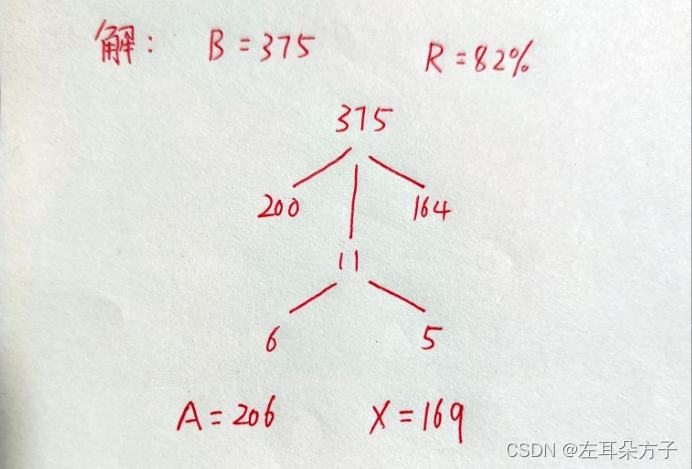 解: B=375 R=82%
375
200 164
11
6 5
A=206 X=169
CSDN @左耳朵方子